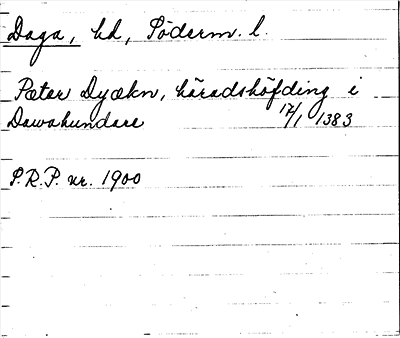 Daga, hd, Söderm. l.
Petar Dyækn, häradshöfding i
Dawahundare 17/1 1383
S.R.P. nr. 1900